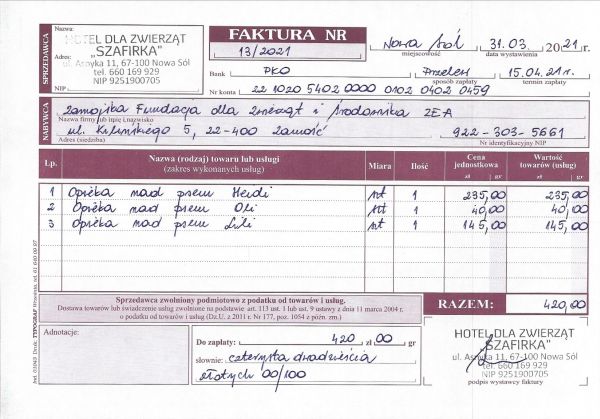 SPRZEDAWCA
Nazwa:
HOTEL DLA ZWIERZĄT
"SZAFIRKA"
Adres:
ul. Asnyka 11, 67-100 Nowa Sól
tel. 660 169 929
NIP 9251900705
NIP
FAKTURA NR
13/2021
Nowa Sól
miejscowość
31.03. 2021 r.
data wystawienia
Bank PKO
Przelew
sposób zapłaty
15.04.21r.
termin zapłaty
Nr konta 22 1020 5402 0000 0102 0402 0459
NABYWCA
Zamojska Fundacja dla Zwierząt i Środowiska ZEA
Nazwa firmy lub imię i nazwisko
ul. Kilińskiego 5, 22-400 Zamość
Adres (siedziba)
922-303-5661
Nr identyfikacyjny NIP
Lp. Nazwa (rodzaj) towaru lub usługi (zakres wykonanych usług) Miara Ilość Cena jednostkowa zł gr Wartość towarów (usług) zł gr
1 Opieka nad psem Heidi szt 1 235,00 235,00
2 Opieka nad psem Oli szt 1 40,00 40,00
3 Opieka nad psem Lili szt 1 145,00 145,00
Sprzedawca zwolniony podmiotowo z podatku od towarów i usług.
Dostawa towarów lub świadczenie usług zwolnione na podstawie art. 113 ust. 1 lub ust. 9 ustawy z dnia 11 marca 2004 r.
o podatku od towarów i usług (Dz.U. z 2011 r. Nr 177, poz. 1054 z późn. zm.)
RAZEM: 420,00
Adnotacje:
Do zapłaty: 420 zł 00 gr
słownie: czterysta dwadzieścia
złotych 00/100
HOTEL DLA ZWIERZĄT
"SZAFIRKA"
ul. Asnyka 11, 67-100 Nowa Sól
tel. 660 169 929
NIP 9251900705
podpis wystawcy faktury